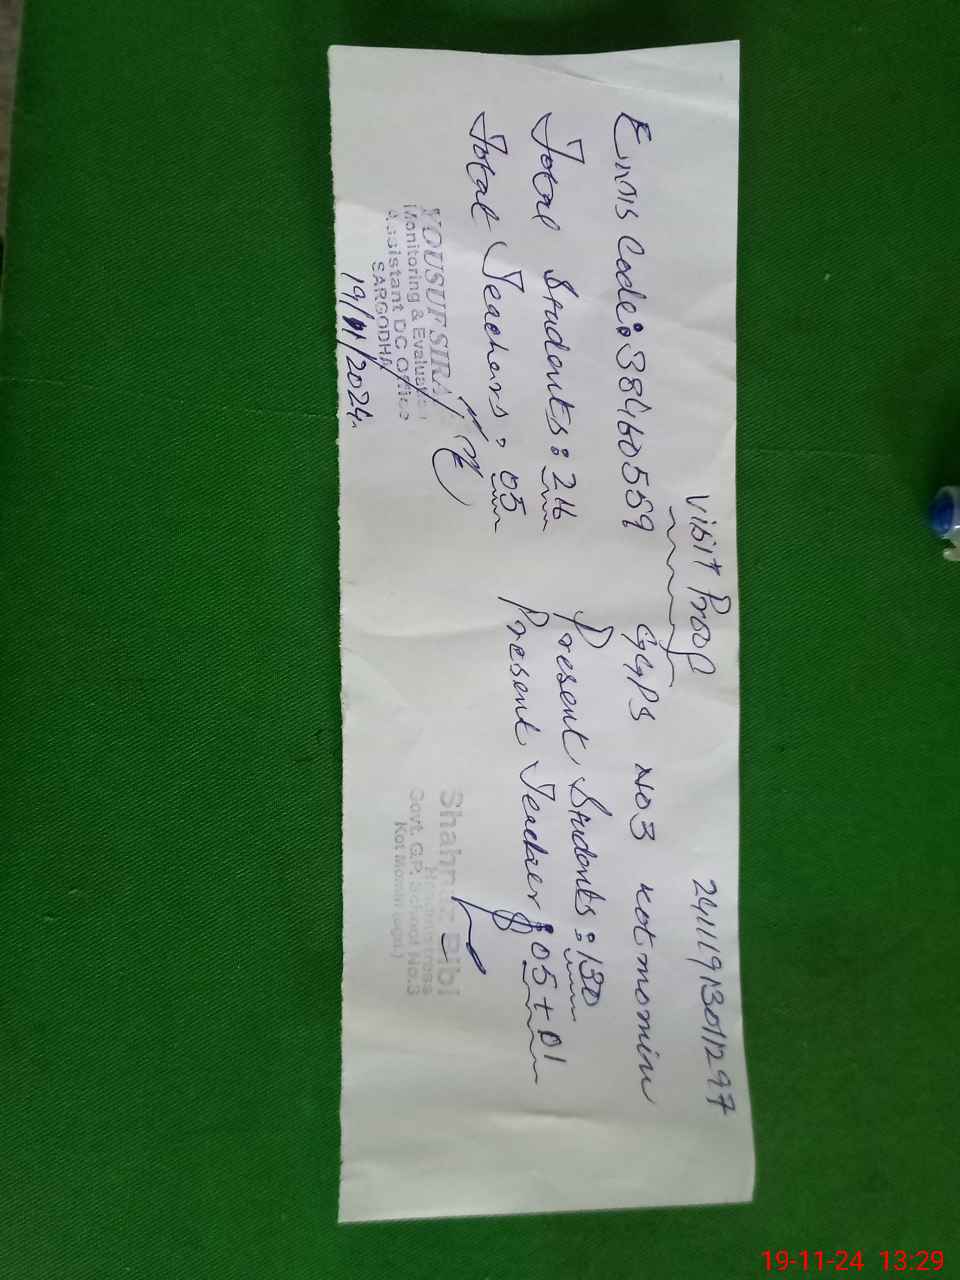 Visit Proof
2411191301297
Emis Code: 38460559 GGPS No3 Kot momin
Total Students: 216 Present Students: 130
Total Teachers: 05 Present Teacher: 05+01
YOUSUF SIRAJ
Monitoring & Evaluation
Assistant DC Office
SARGODHA
19/11/2024
Shahnaz Bibi
Headmistress
Govt. G.P. School No.3
Kot Momin
19-11-24 13:29